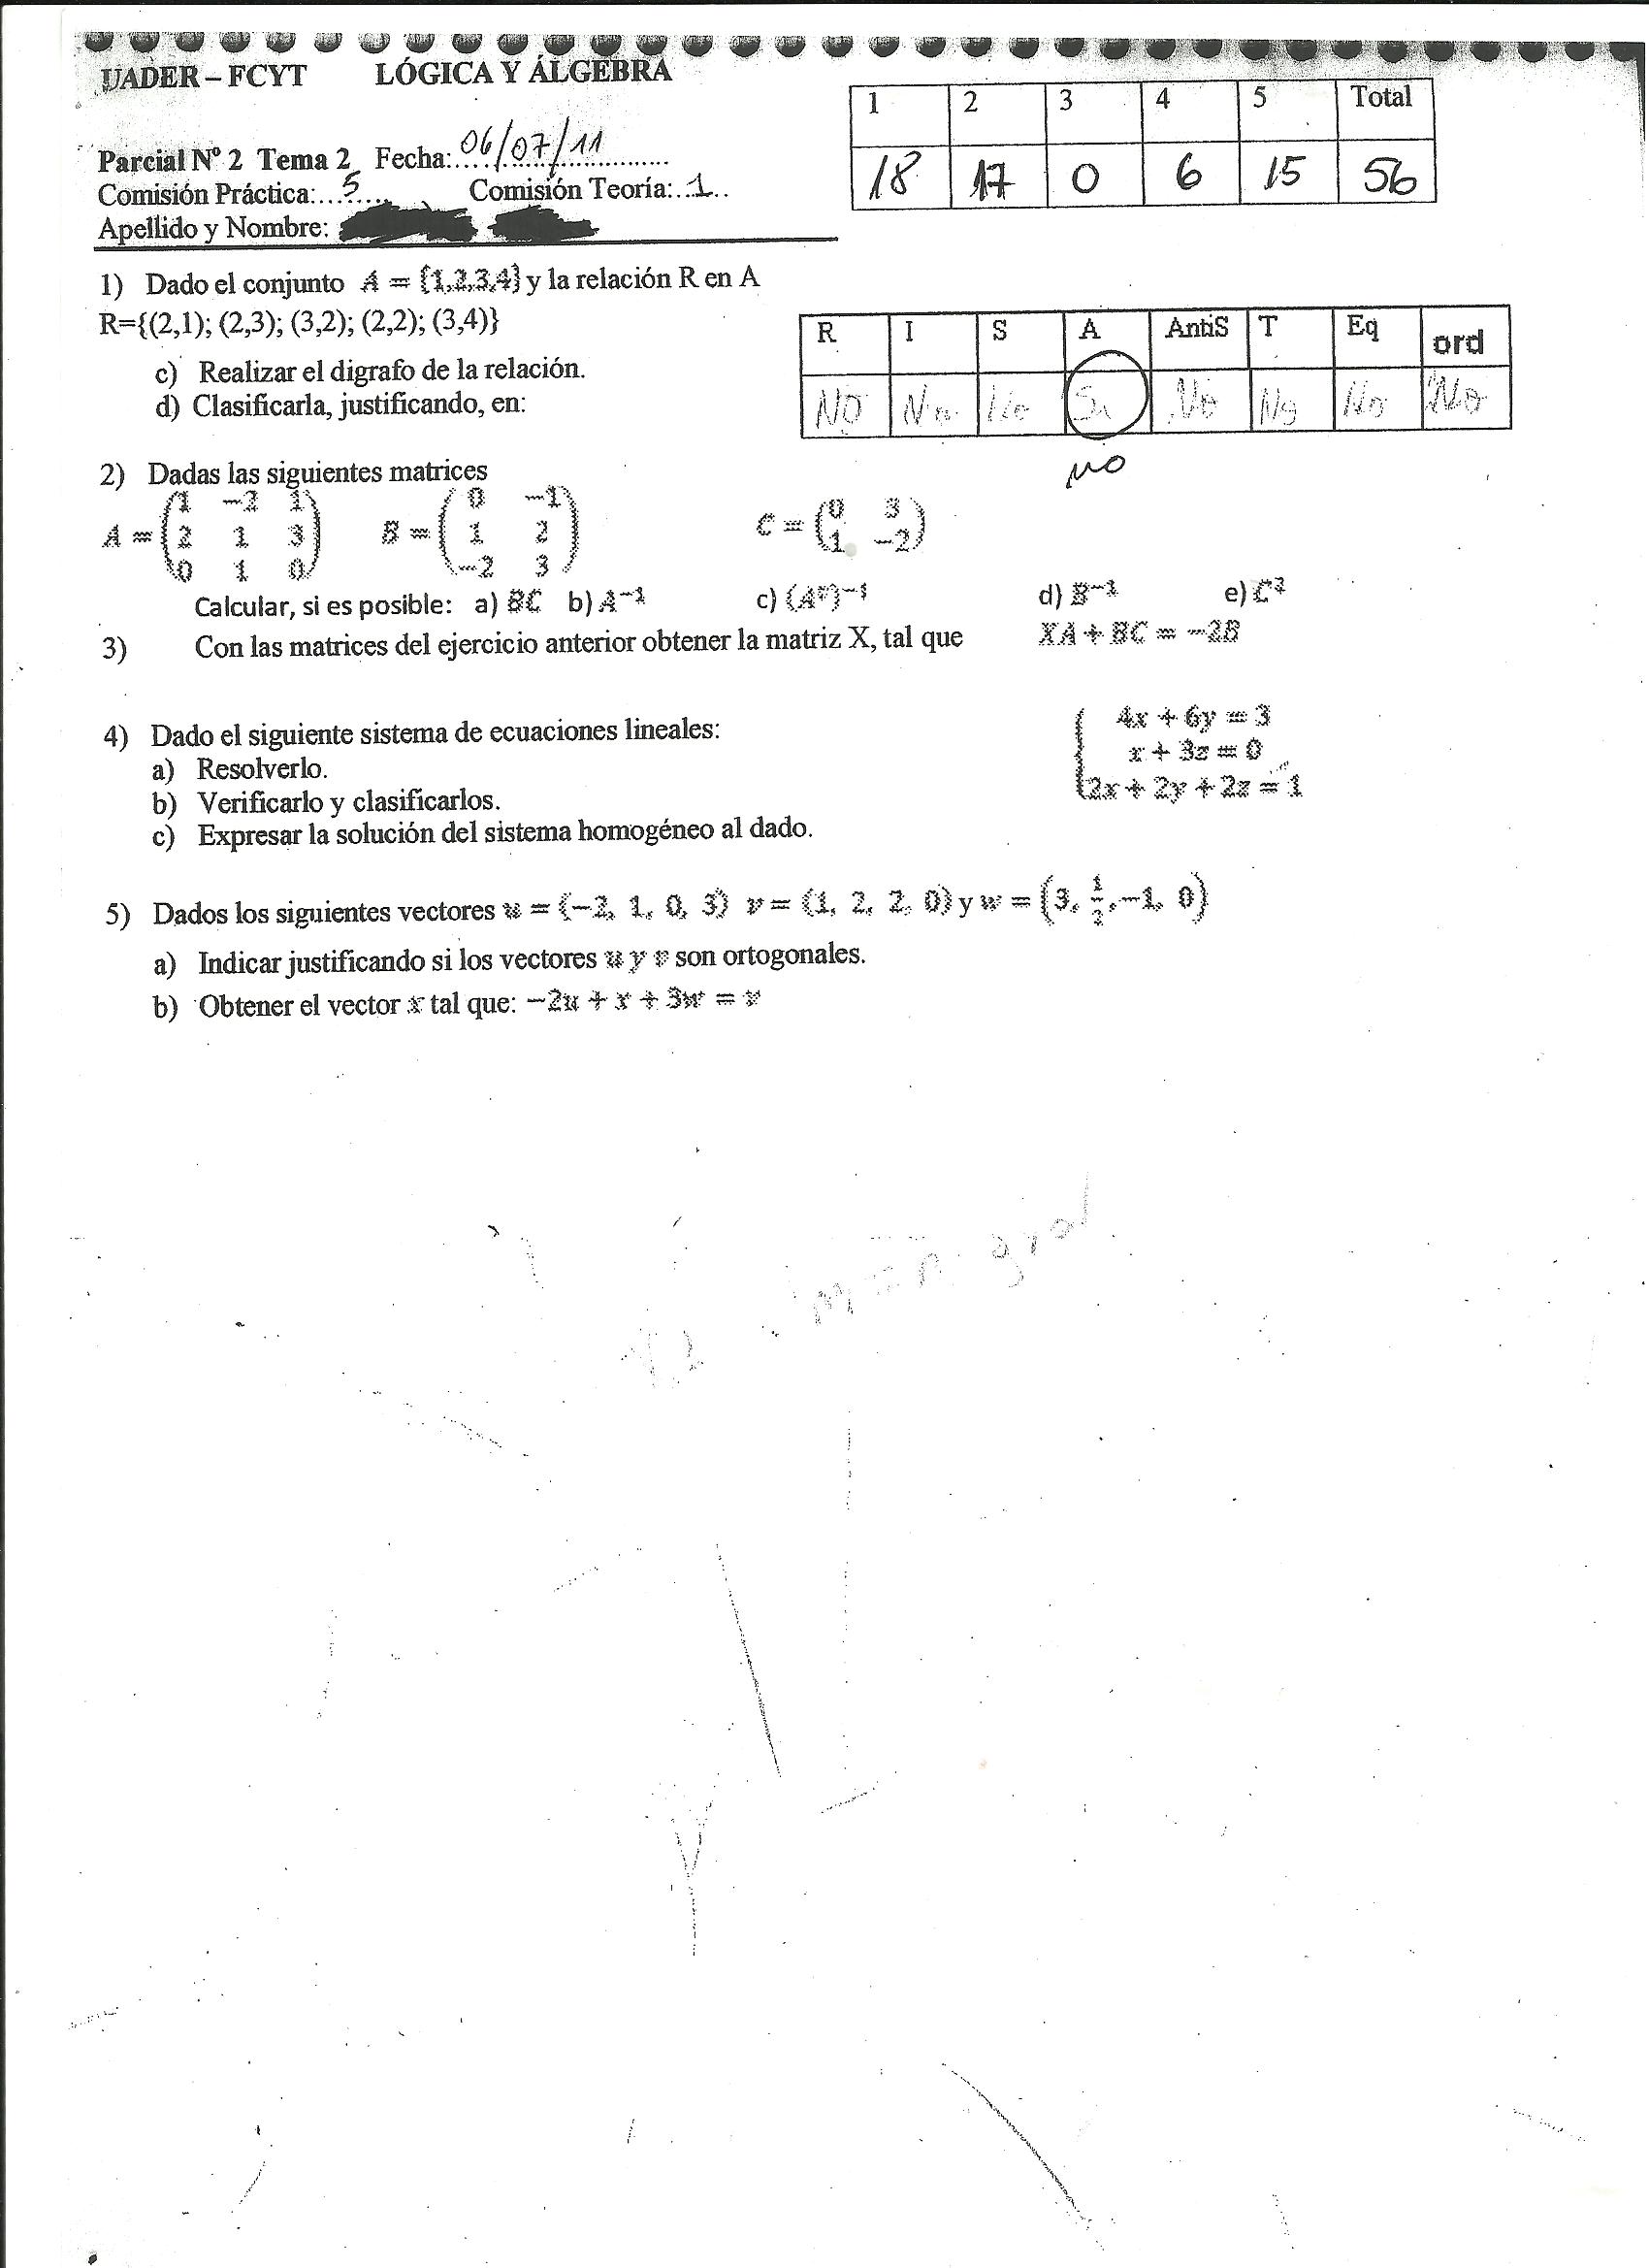 UADER – FCYT LÓGICA Y ÁLGEBRA
1 2 3 4 5 Total
18 17 0 6 15 56
Parcial Nº 2 Tema 2 Fecha: 06/07/11
Comisión Práctica: 5 Comisión Teoría: 1
Apellido y Nombre:
1) Dado el conjunto A = {1,2,3,4} y la relación R en A
R={(2,1); (2,3); (3,2); (2,2); (3,4)}
R I S A AntiS T Eq ord
No No No Si No No No No
NO
c) Realizar el digrafo de la relación.
d) Clasificarla, justificando, en:
2) Dadas las siguientes matrices
A = (1 −2 1
2 1 3
0 1 0)
B = (0 −1
1 2
−2 3)
C = (0 3
1 −2)
Calcular, si es posible: a) BC b) A⁻¹ c) (Aᵀ)⁻¹ d) B⁻¹ e) C²
3) Con las matrices del ejercicio anterior obtener la matriz X, tal que XA + BC = −2B
4) Dado el siguiente sistema de ecuaciones lineales:
4x + 6y = 3
x + 3z = 0
2x + 2y + 2z = 1
a) Resolverlo.
b) Verificarlo y clasificarlos.
c) Expresar la solución del sistema homogéneo al dado.
5) Dados los siguientes vectores u = (−2, 1, 0, 3) v = (1, 2, 2, 0) y w = (3, 1/2, −1, 0)
a) Indicar justificando si los vectores u y v son ortogonales.
b) Obtener el vector x tal que: −2u + x + 3w = v